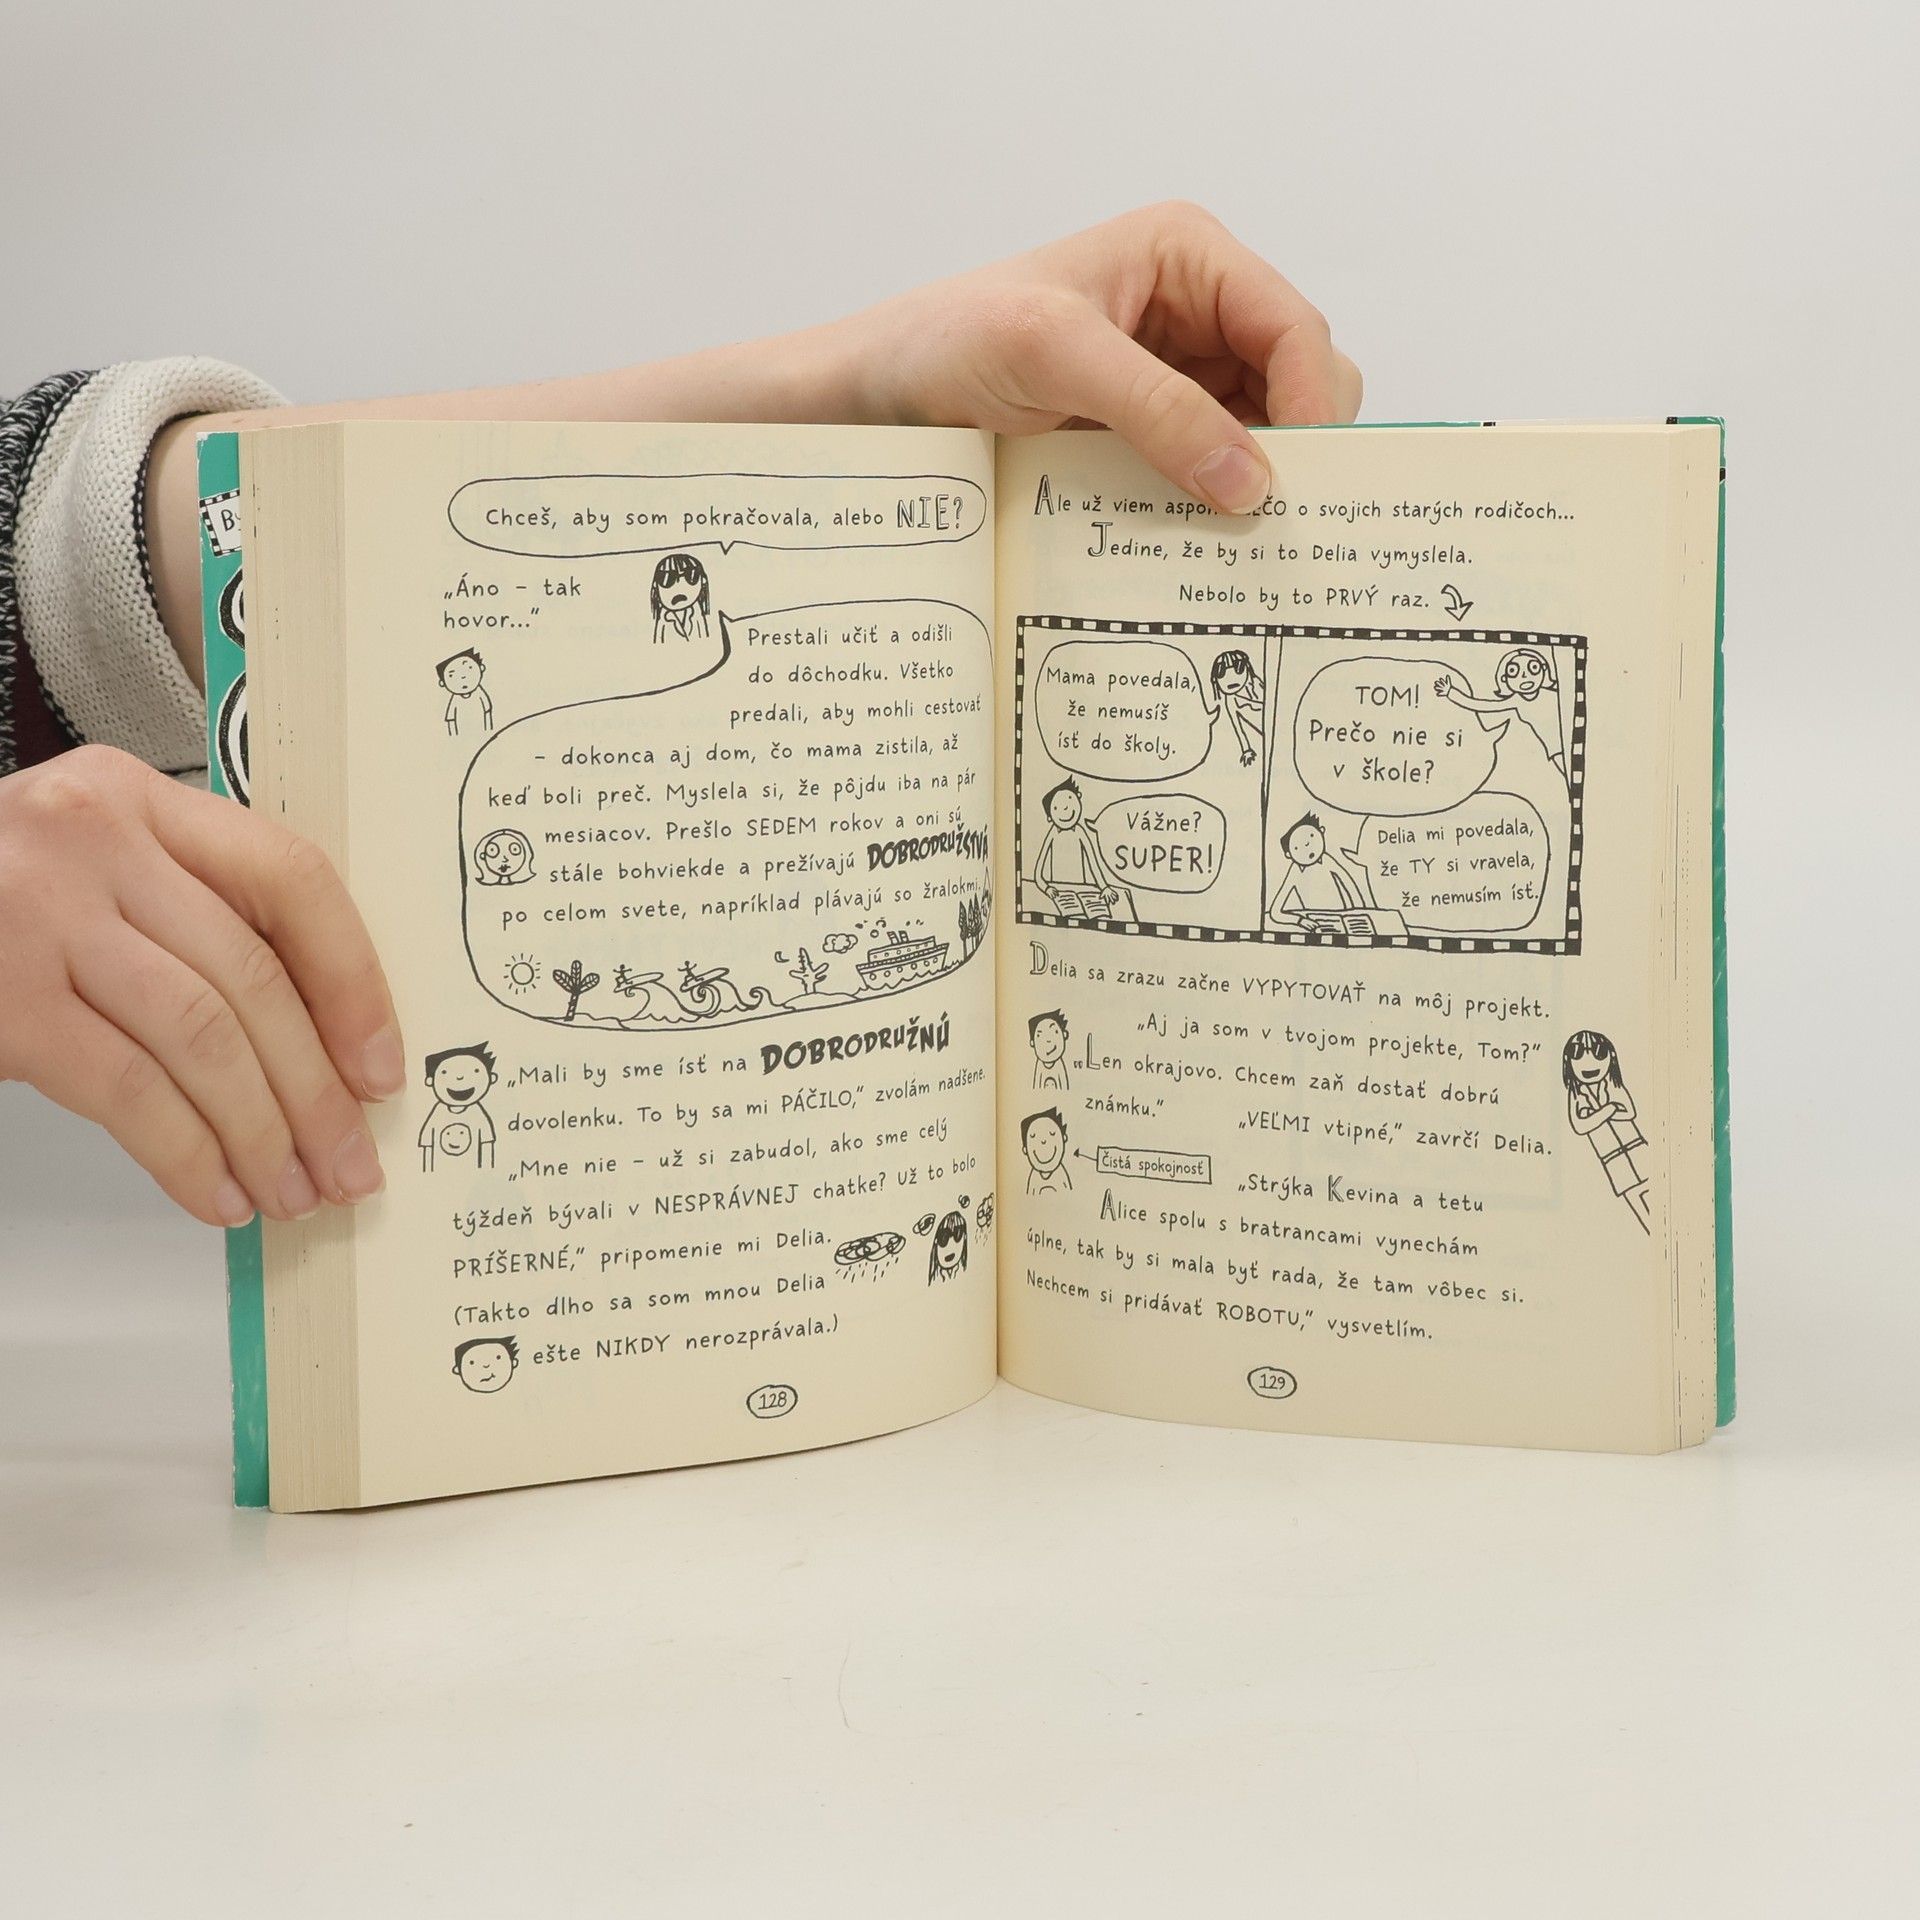 Chceš, aby som pokračovala, alebo NIE?
„Áno – tak
hovor...“
Prestali učiť a odišli
do dôchodku. Všetko
predali, aby mohli cestovať
– dokonca aj dom, čo mama zistila, až
keď boli preč. Myslela si, že pôjdu iba na pár
mesiacov. Prešlo SEDEM rokov a oni sú
stále bohviekde a prežívajú DOBRODRUŽSTVÁ
po celom svete, napríklad plávajú so žralokmi.
„Mali by sme ísť na DOBRODRUŽNÚ
dovolenku. To by sa mi PÁČILO,“ zvolám nadšene.
„Mne nie – už si zabudol, ako sme celý
týždeň bývali v NESPRÁVNEJ chatke? Už to bolo
PRÍŠERNÉ,“ pripomenie mi Delia.
(Takto dlho sa som mnou Delia
ešte NIKDY nerozprávala.)
128
Ale už viem o svojich starých rodičoch...
Jedine, že by si to Delia vymyslela.
Nebolo by to PRVÝ raz.
Mama povedala,
že nemusíš
ísť do školy.
Vážne?
SUPER!
TOM!
Prečo nie si
v škole?
Delia mi povedala,
že TY si vravela,
že nemusím ísť.
Delia sa zrazu začne VYPYTOVAŤ na môj projekt.
„Aj ja som v tvojom projekte, Tom?“
„Len okrajovo. Chcem zaň dostať dobrú
známku.“
„VEĽMI vtipné,“ zavrčí Delia.
Čistá spokojnosť
„Strýka Kevina a tetu
Alice spolu s bratrancami vynechám
úplne, tak by si mala byť rada, že tam vôbec si.
Nechcem si pridávať ROBOTU,“ vysvetlím.
129